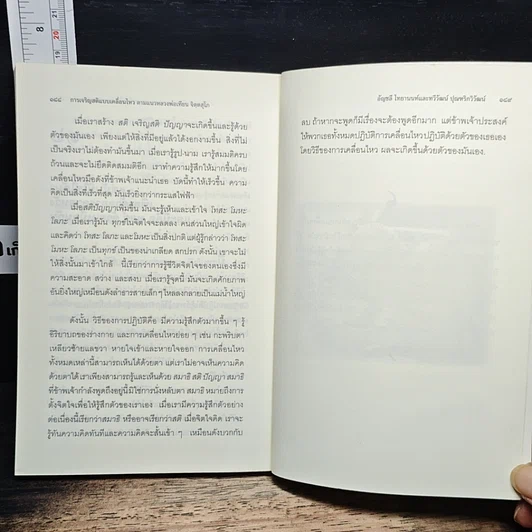 ๑๘๘ การเจริญสติแบบเคลื่อนไหว ตามแนวหลวงพ่อเทียน จิตฺตสุโภ
เมื่อเราสร้าง สติ เจริญสติ ปัญญาจะเกิดขึ้นและรู้ด้วย
ตัวของมันเอง เพียงแต่ให้สิ่งที่มีอยู่แล้วได้งอกงามขึ้น สิ่งที่ไม่
เป็นจริงเราไม่ต้องทำมันขึ้นมา เมื่อเรารู้รูป-นาม เรารู้สมมติครบ
ถ้วนและจะไม่ยึดติดสมมติอีก เราทำความรู้สึกให้มากขึ้นโดย
เคลื่อนไหวมือดังที่ข้าพเจ้าแนะนำเธอ บัดนี้ทำให้เร็วขึ้น ความ
คิดเป็นสิ่งที่เร็วที่สุด มันเร็วยิ่งกว่ากระแสไฟฟ้า
เมื่อสติปัญญาเพิ่มขึ้น มันจะรู้เห็นและเข้าใจ โทสะ โมหะ
โลภะ เมื่อเรารู้มัน ทุกข์ในจิตใจจะลดลง คนส่วนใหญ่เข้าใจผิด
และคิดว่า โทสะ โลภะ และโมหะ เป็นสิ่งปกติ แต่ผู้รู้กล่าวว่า โทสะ
โมหะ โลภะ เป็นทุกข์ เป็นของน่าเกลียด สกปรก ดังนั้น เขาจะไม่
ให้สิ่งนั้นมาเข้าใกล้ นี้เรียกว่าการรู้ชีวิตจิตใจของตนเองซึ่งมี
ความสะอาด สว่าง และสงบ เมื่อเรารู้จุดนี้ มันจะเกิดศักยภาพ
อันยิ่งใหญ่เหมือนดังลำธารสายเล็กๆ ไหลลงกลายเป็นแม่น้ำใหญ่
ดังนั้น วิธีของการปฏิบัติคือ มีความรู้สึกตัวมากขึ้น ๆ รู้
อิริยาบถของร่างกาย และการเคลื่อนไหวย่อยๆ เช่น กะพริบตา
เหลียวซ้ายแลขวา หายใจเข้าและหายใจออก การเคลื่อนไหว
ทั้งหมดเหล่านี้สามารถเห็นได้ด้วยตา แต่เราไม่อาจเห็นความคิด
ด้วยตาได้ เราเพียงสามารถรู้และเห็นด้วย สมาธิ สติ ปัญญา สมาธิ
ที่ข้าพเจ้ากำลังพูดถึงอยู่นี้มิใช่การนั่งหลับตา สมาธิ หมายถึงการ
ตั้งจิตใจเพื่อให้รู้สึกตัวของเราเอง เมื่อเรามีความรู้สึกตัวอย่าง
ต่อเนื่องนี้เรียกว่า สมาธิ หรืออาจเรียกว่าสติ เมื่อจิตใจคิด เราจะ
รู้ทันความคิดทันทีและความคิดจะสั้นเข้า ๆ เหมือนดังบวกกับ
อัญชลี ไทยานนท์และทวีวัฒน์ ปุณฑริกวิวัฒน์ ๑๘๙
ลบ ถ้าหากจะพูดก็มีเรื่องจะต้องพูดอีกมาก แต่ข้าพเจ้าประสงค์
ให้พวกเธอทั้งหมดปฏิบัติการเคลื่อนไหวปฏิบัติด้วยตัวของเธอเอง
โดยวิธีของการเคลื่อนไหว ผลจะเกิดขึ้นด้วยตัวของมันเอง.
8
9
20
21